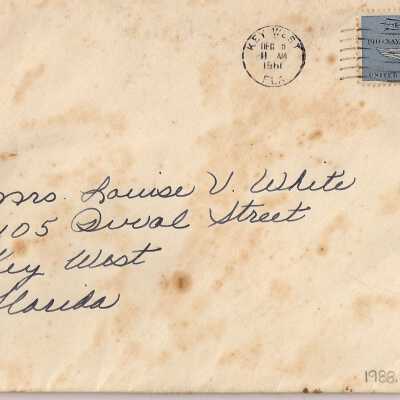 KEY WEST
DEC 5
11 AM
1961
FLA
1911 NAVAL
UNITED
Mrs. Louise V. White
405 Duval Street
Key West
Florida
1988.